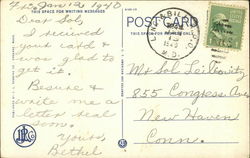 Fri Jan 12, 1940
THIS SPACE FOR WRITING MESSAGES
Dear Sol,
I received
your card &
was glad to
get it.
Be sure &
write me a
letter real
soon.
Yours,
Bethel
POST CARD
THIS SPACE FOR ADDRESS ONLY
Mr Sol
855 Congress Ave
New Haven
Conn.